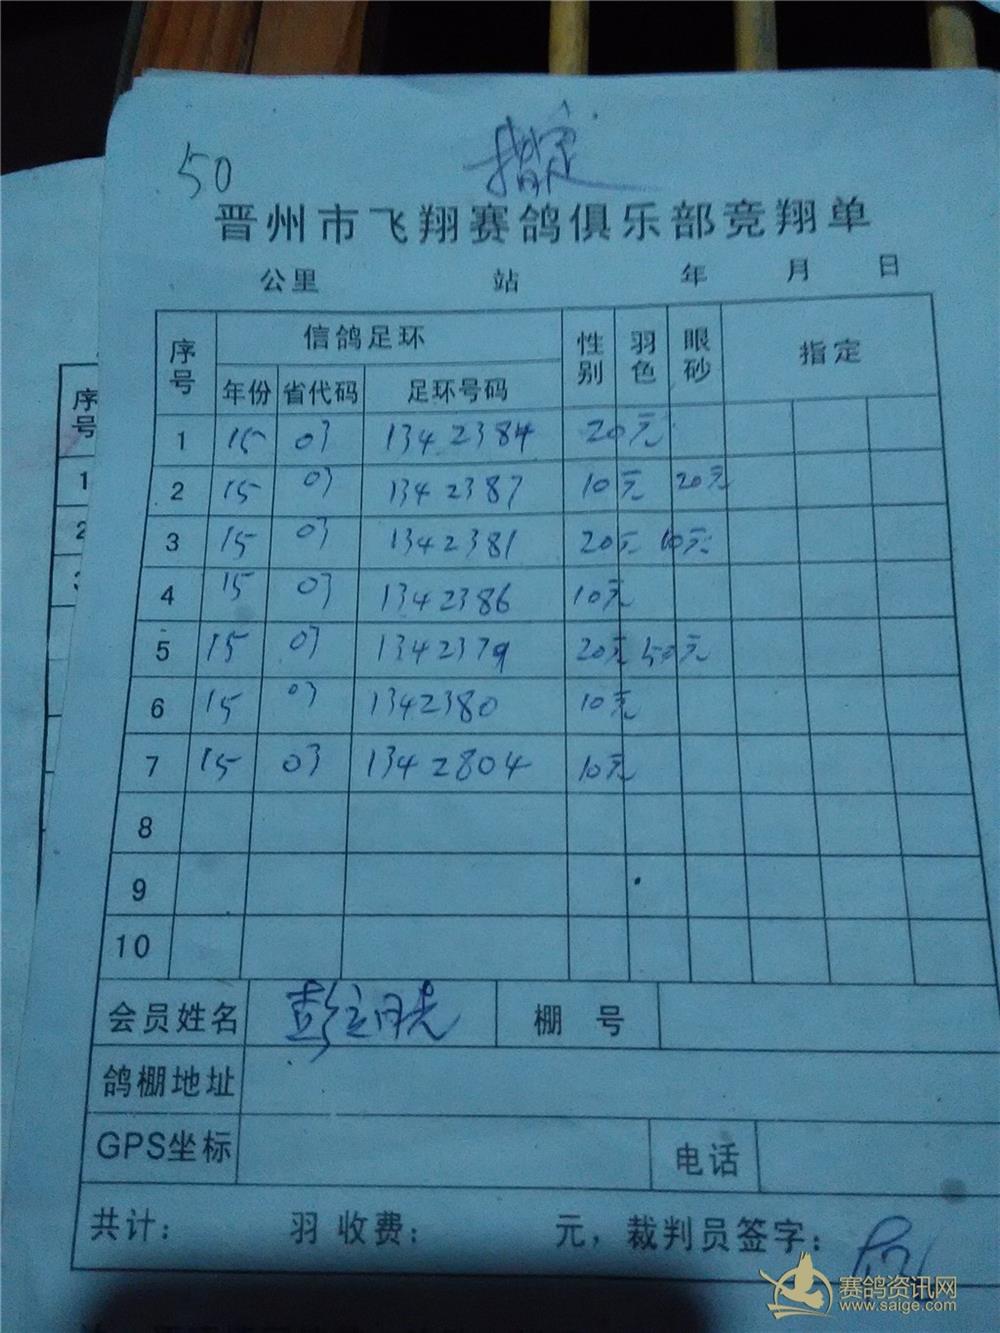 指定
50
晋州市飞翔赛鸽俱乐部竞翔单
公里 站 年 月 日
序号 信鸽足环 性别 羽色 眼砂 指定
年份 省代码 足环号码
1 15 03 1342384 20元
2 15 03 1342387 10元 20元
3 15 03 1342381 20元 10元
4 15 03 1342386 10元
5 15 03 1342379 20元 50元
6 15 03 1342380 10元
7 15 03 1342804 10元
8
9
10
会员姓名 彭 棚号
鸽棚地址
GPS坐标 电话
共计： 羽 收费： 元，裁判员签字：
序号
1
2
3
赛鸽资讯网
www.saige.com